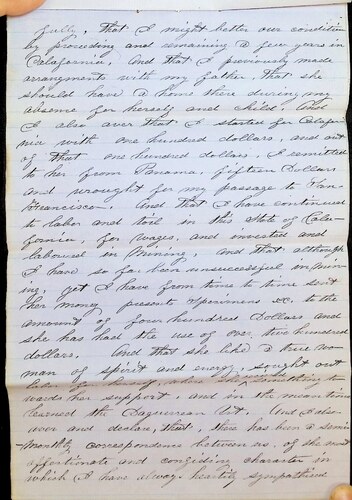 fully, that I might better our condition
by proceeding and remaining a few years in
Calafornia, And that I previously made
arrangments with my father, that she
should have a home there during my
absence for herself and child. And
I also aver that I started for Calafor
nia with one hundred dollars, and out
of that one hundred dollars, I remitted
to her from Panama, fifteen Dollars
and wrought for my passage to San
Francisco. And that I have continued
to labor and toil in this State of Cala-
fornia, for wages, and invested and
laboured in Mining, and that although
I have so far been unsuccessful in Min-
ing, yet I have from time to time sent
her money presents Specimens &c. to the
amount of four hundred Dollars and
she has had the use of over two hundred
dollars. And that she like a true wo-
man of spirit and energy, sought out
labor for herself, where she something to-
wards her support, and in the mean time
learned the Daguerrean Art. And I also
aver and declare, that, there has been a semi-
monthly correspondence between us, of the most
affectionate and confiding character in
which I have always heartily sympathised